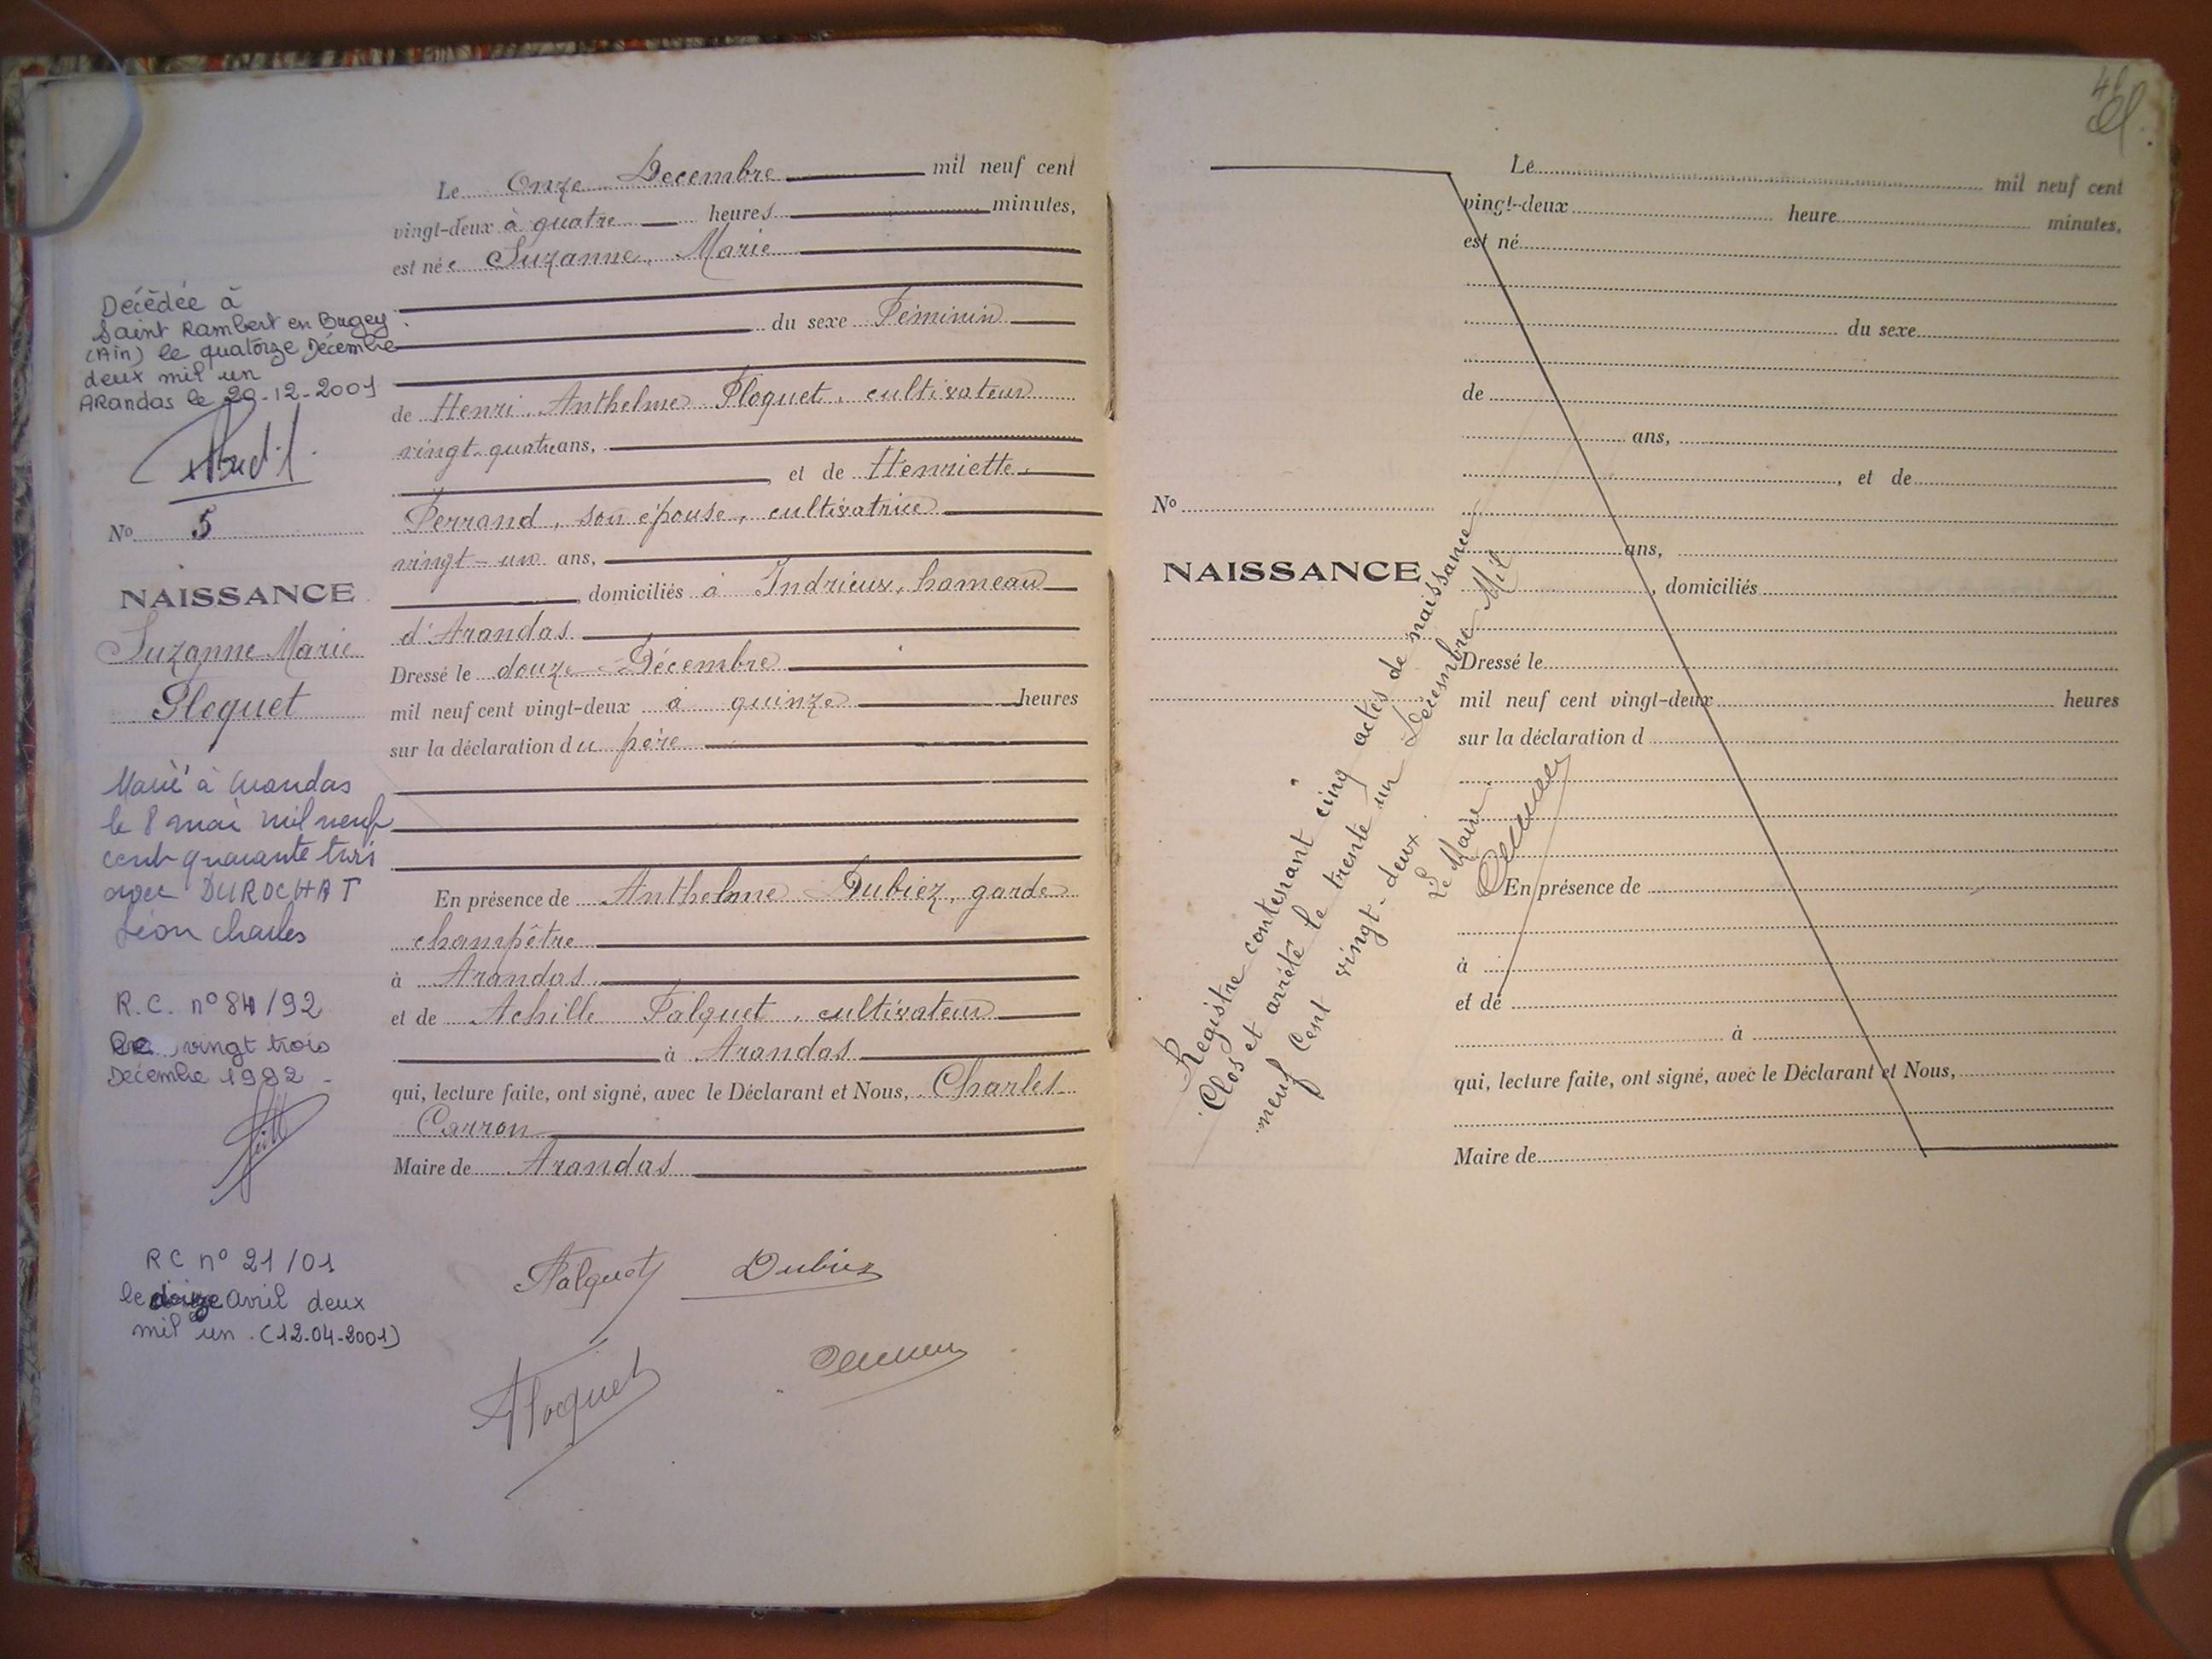 Décédée à
Saint Rambert en Bugey
(Ain) le quatorze Décembre
deux mil un
ARandas le 20-12-2001
No 5
NAISSANCE
Suzanne Marie
Floquet
Marié à Arandas
le 8 mai mil neuf
cent quarante trois
avec DUROCHAT
Léon Charles
R.C. n° 84/92
vingt trois
Décembre 1992
RC n° 21/01
le avril deux
mil un. (12-04-2001)
Le Onze Decembre mil neuf cent
vingt-deux à quatre heures minutes,
est née Suzanne, Marie
du sexe Féminin
de Henri Anthelme Floquet, cultivateur
vingt-quatre ans,
et de Henriette,
Perrand, son épouse, cultivatrice
vingt-un ans,
domiciliés à Indrieux, hameau
d'Arandas
Dressé le douze Décembre
mil neuf cent vingt-deux à quinze heures
sur la déclaration du père
En présence de Anthelme Dubiez, garde
champêtre
à Arandas
et de Achille Falquet, cultivateur
à Arandas
qui, lecture faite, ont signé, avec le Déclarant et Nous, Charles
Carron
Maire de Arandas
Falquet Dubiez
Floquet
41
Le mil neuf cent
vingt-deux heure minutes,
est né
du sexe
de
ans,
, et de
No
NAISSANCE
ans,
, domiciliés
Dressé le
mil neuf cent vingt-deux heures
sur la déclaration d
En présence de
à
et de
à
qui, lecture faite, ont signé, avec le Déclarant et Nous,
Maire de
Registre contenant cinq actes de naissance
Clos et arrêté le trente un Décembre Mil
neuf Cent vingt-deux.
Le Maire